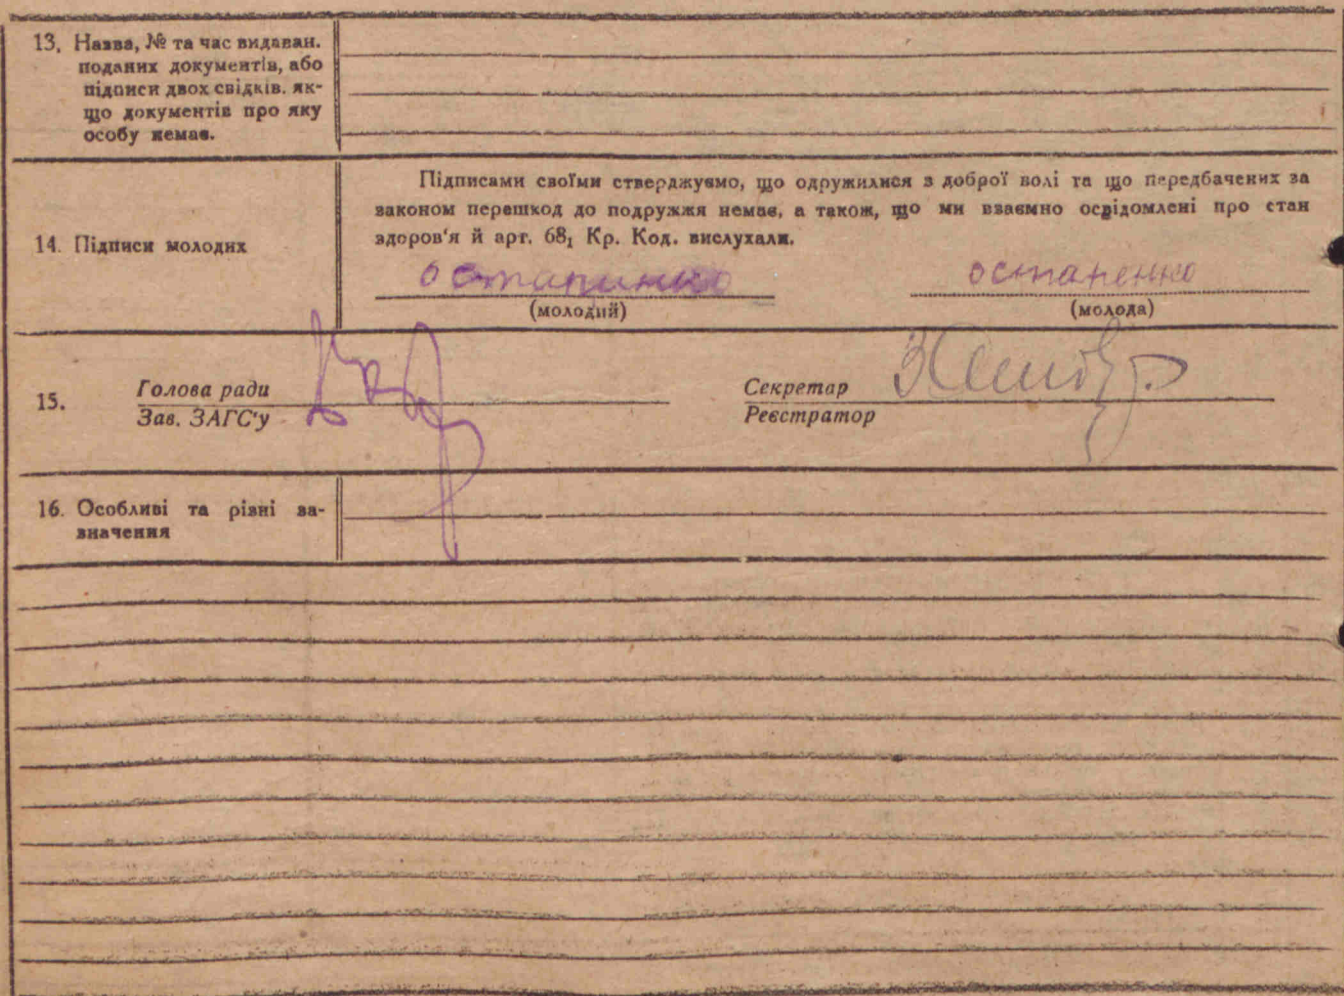 13. Назва, № та час видаван.
поданих документів, або
підписи двох свідків. як-
що документів про яку
особу немає.
14. Підписи молодих
Підписами своїми стверджуємо, що одружилися з доброї волі та що передбачених за
законом перешкод до подружжя немає, а також, що ми взаємно освідомлені про стан
здоров'я й арт. 68₁ Кр. Код. вислухали.
остапинко
остапенко
(молодий)
(молода)
15.
Голова ради
Зав. ЗАГС'у
Секретар
Реєстратор
16. Особливі та різні за-
значення